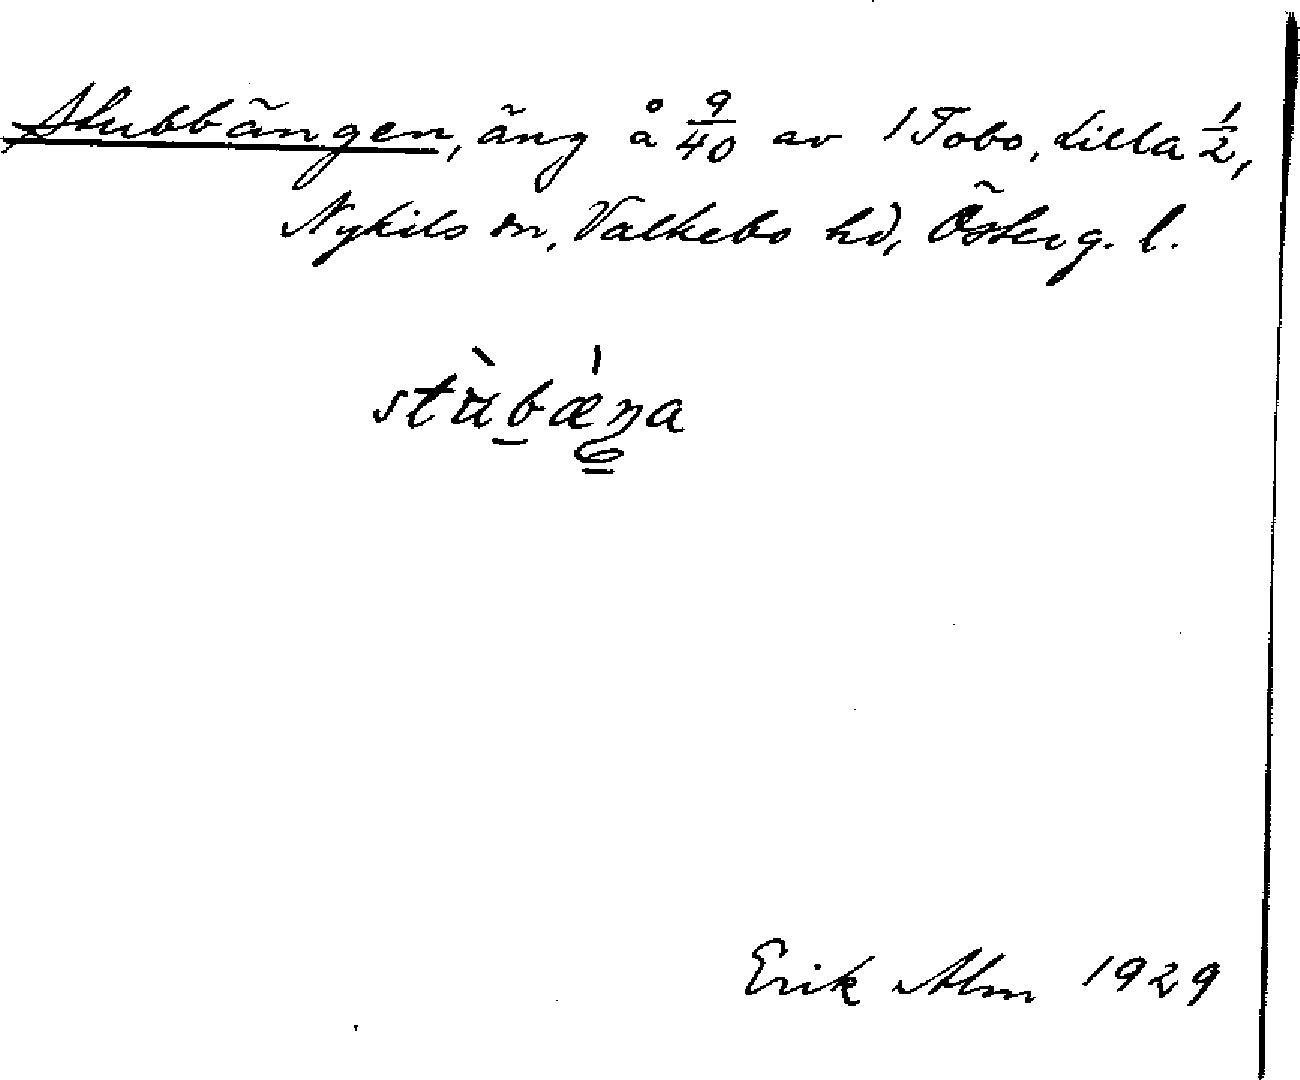 Stubbängen, äng å 9/40 av 1 Tobo, Lilla 1/2,
Nykils sn, Valkebo hd, Österg. l.
stu̇̀ḇǽŋa
Erik Alm 1929